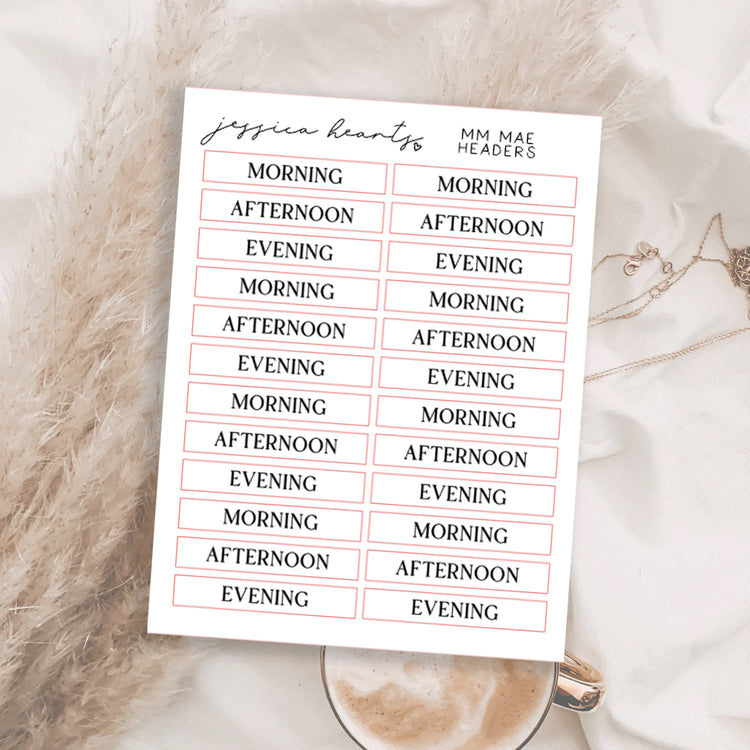 jessica hearts
MM MAE
HEADERS
MORNING MORNING
AFTERNOON AFTERNOON
EVENING EVENING
MORNING MORNING
AFTERNOON AFTERNOON
EVENING EVENING
MORNING MORNING
AFTERNOON AFTERNOON
EVENING EVENING
MORNING MORNING
AFTERNOON AFTERNOON
EVENING EVENING